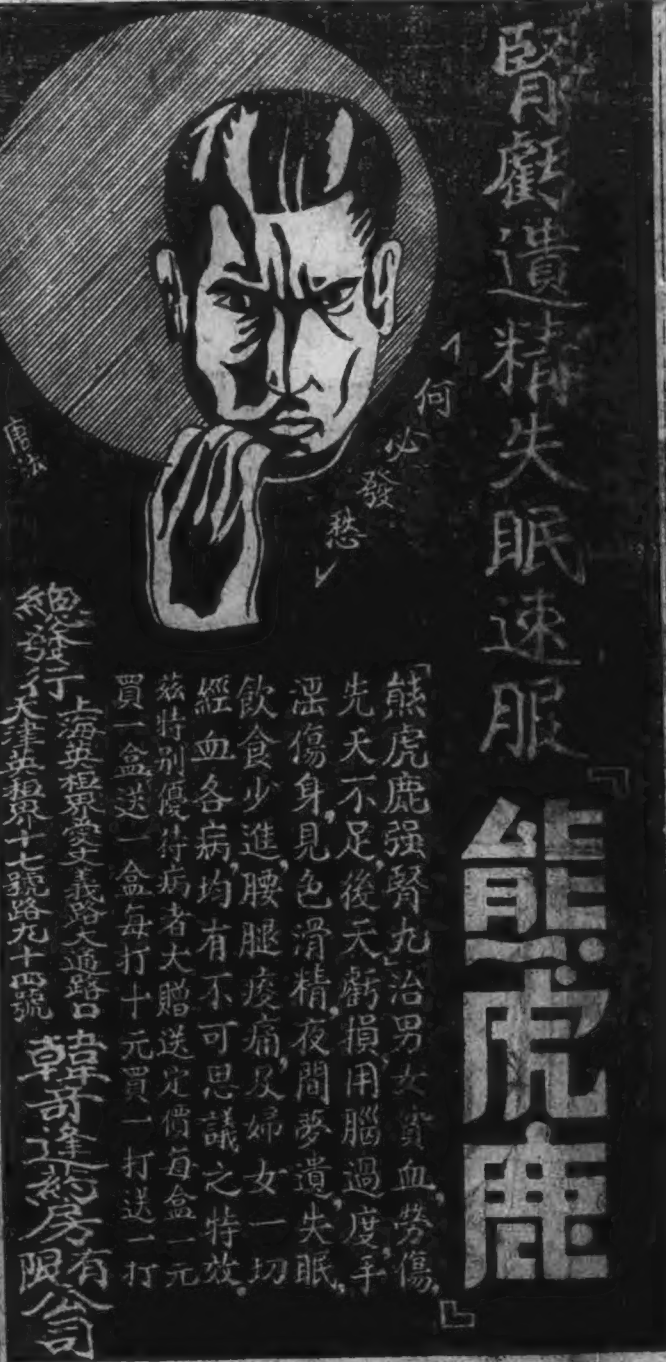 腎虧遺精失眠速服
『熊虎鹿』
「何必發愁」
「熊虎鹿强腎丸」治男女貧血,勞傷,
先天不足,後天虧損用腦過度,手
淫傷身,見色滑精,夜間夢遺,失眠,
飲食少進,腰腿痠痛,及婦女一切
經血各病,均有不可思議之特效。
茲特別優待病者大贈送定價每盒一元
買一盒送一盒每打十元買一打送一打
總發行
上海英租界愛文義路大通路口
天津英租界十七號路九十四號
韓奇逢葯房有限公司